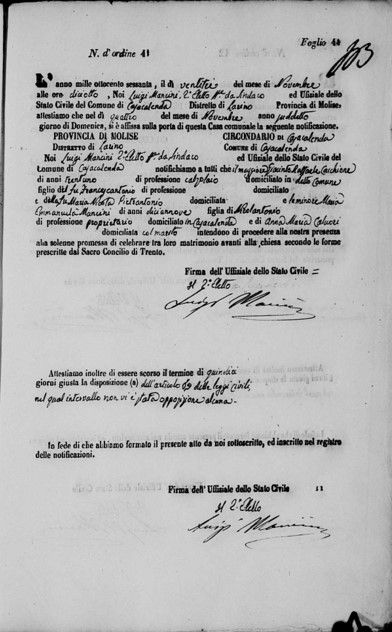 Foglio 41
N. d'ordine 41
103
L'anno mille ottocento sessanta, il dì ventitre del mese di Novembre
alle ore diciotto, Noi Luigi Mancini, 2° Eletto ff. da Sindaco ed Uffiziale dello
Stato Civile del Comune di Casacalenda Distretto di Larino Provincia di Molise,
attestiamo che nel dì quattro del mese di Novembre anno suddetto
giorno di Domenica, si è affissa sulla porta di questa Casa comunale la seguente notificazione.
PROVINCIA DI MOLISE CIRCONDARIO DI Casacalenda
DISTRETTO DI Larino COMUNE DI Casacalenda
Noi Luigi Mancini 2° Eletto ff. da Sindaco ed Uffiziale dello Stato Civile del
Comune di Casacalenda notifichiamo a tutti che il maggiore Giacinto Raffaele
di anni trentuno di professione domiciliato in detto Comune
figlio del fu Francescantonio di professione domiciliato
e della fu Maria Pietrantonio domiciliata e la minore Maria
Emmanuela Mancini di anni diciannove figlia di
di professione proprietario domiciliato in Casacalenda e di Anna Maria
domiciliata col marito intendono di procedere alla nostra presenza
alla solenne promessa di celebrare tra loro matrimonio avanti alla chiesa secondo le forme
prescritte dal Sacro Concilio di Trento.
Firma dell' Uffiziale dello Stato Civile =
Il 2° Eletto
Luigi Mancini
Attestiamo inoltre di essere scorso il termine di quindici
giorni giusta la disposizione (a) dell'articolo 69 delle leggi civili,
nel qual intervallo non vi è stata opposizione alcuna.
In fede di che abbiamo formato il presente atto da noi sottoscritto, ed inscritto nel registro
delle notificazioni.
Firma dell' Uffiziale dello Stato Civile
Il 2° Eletto
Luigi Mancini